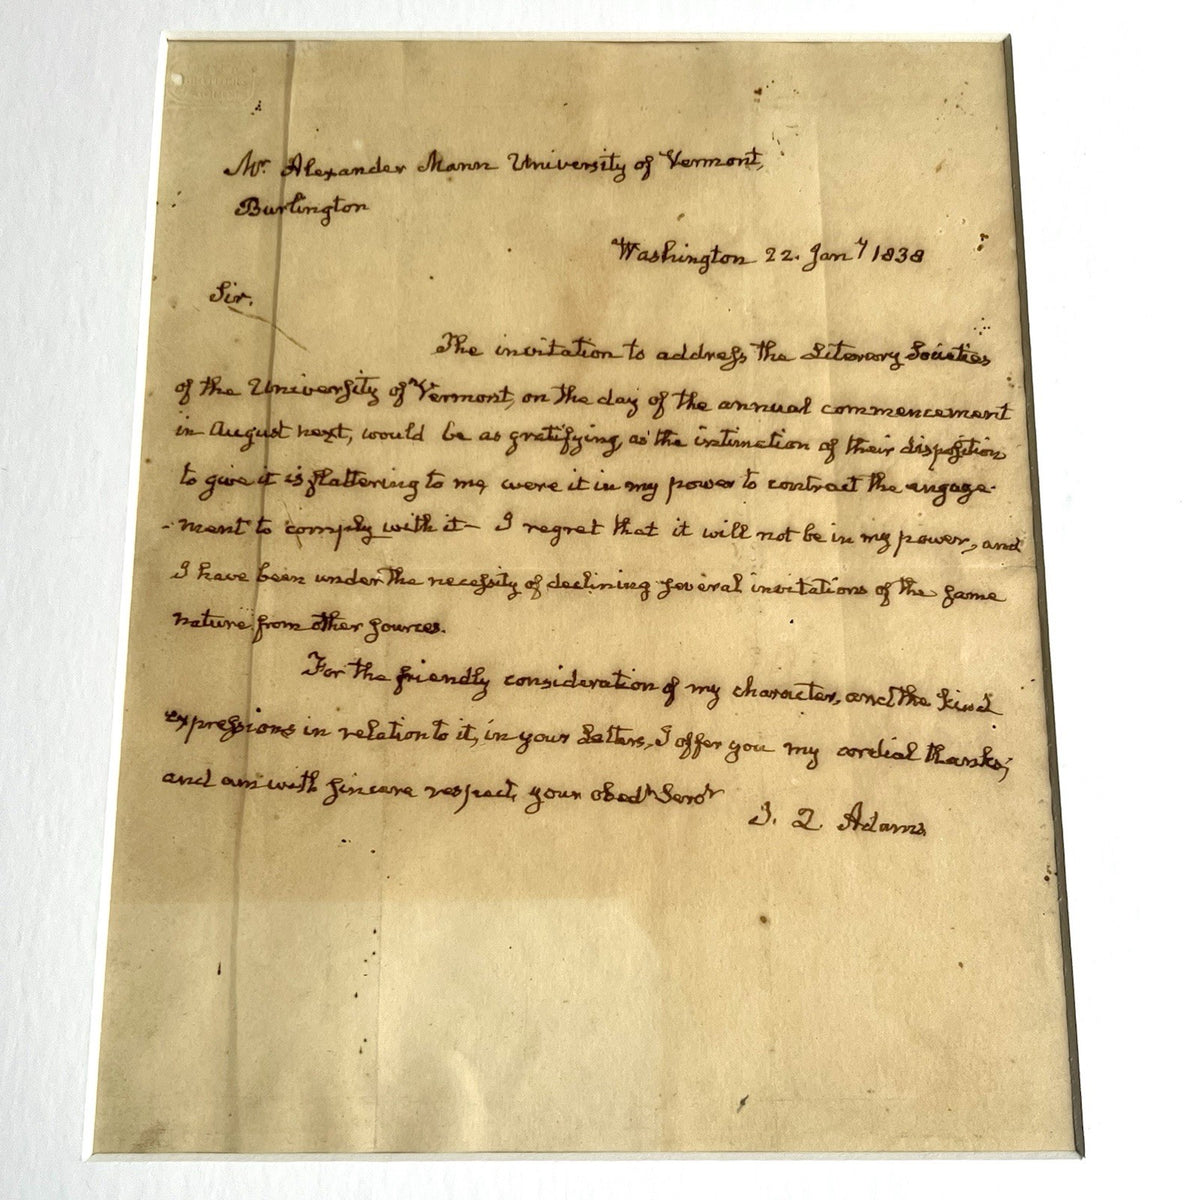 Mr. Alexander Mann University of Vermont,
Burlington
Washington 22. Jany 1838
Sir.
The invitation to address the Literary Societies
of the University of Vermont, on the day of the annual commencement
in August next, would be as gratifying, as the intimation of their disposition
to give it is flattering to me, were it in my power to contract the engage-
-ment to comply with it— I regret that it will not be in my power, and
I have been under the necessity of declining several invitations of the same
nature from other sources.
For the friendly consideration of my character, and the kind
expressions in relation to it, in your Letters, I offer you my cordial thanks;
and am with sincere respect, your obedt Servt
J. Q. Adams